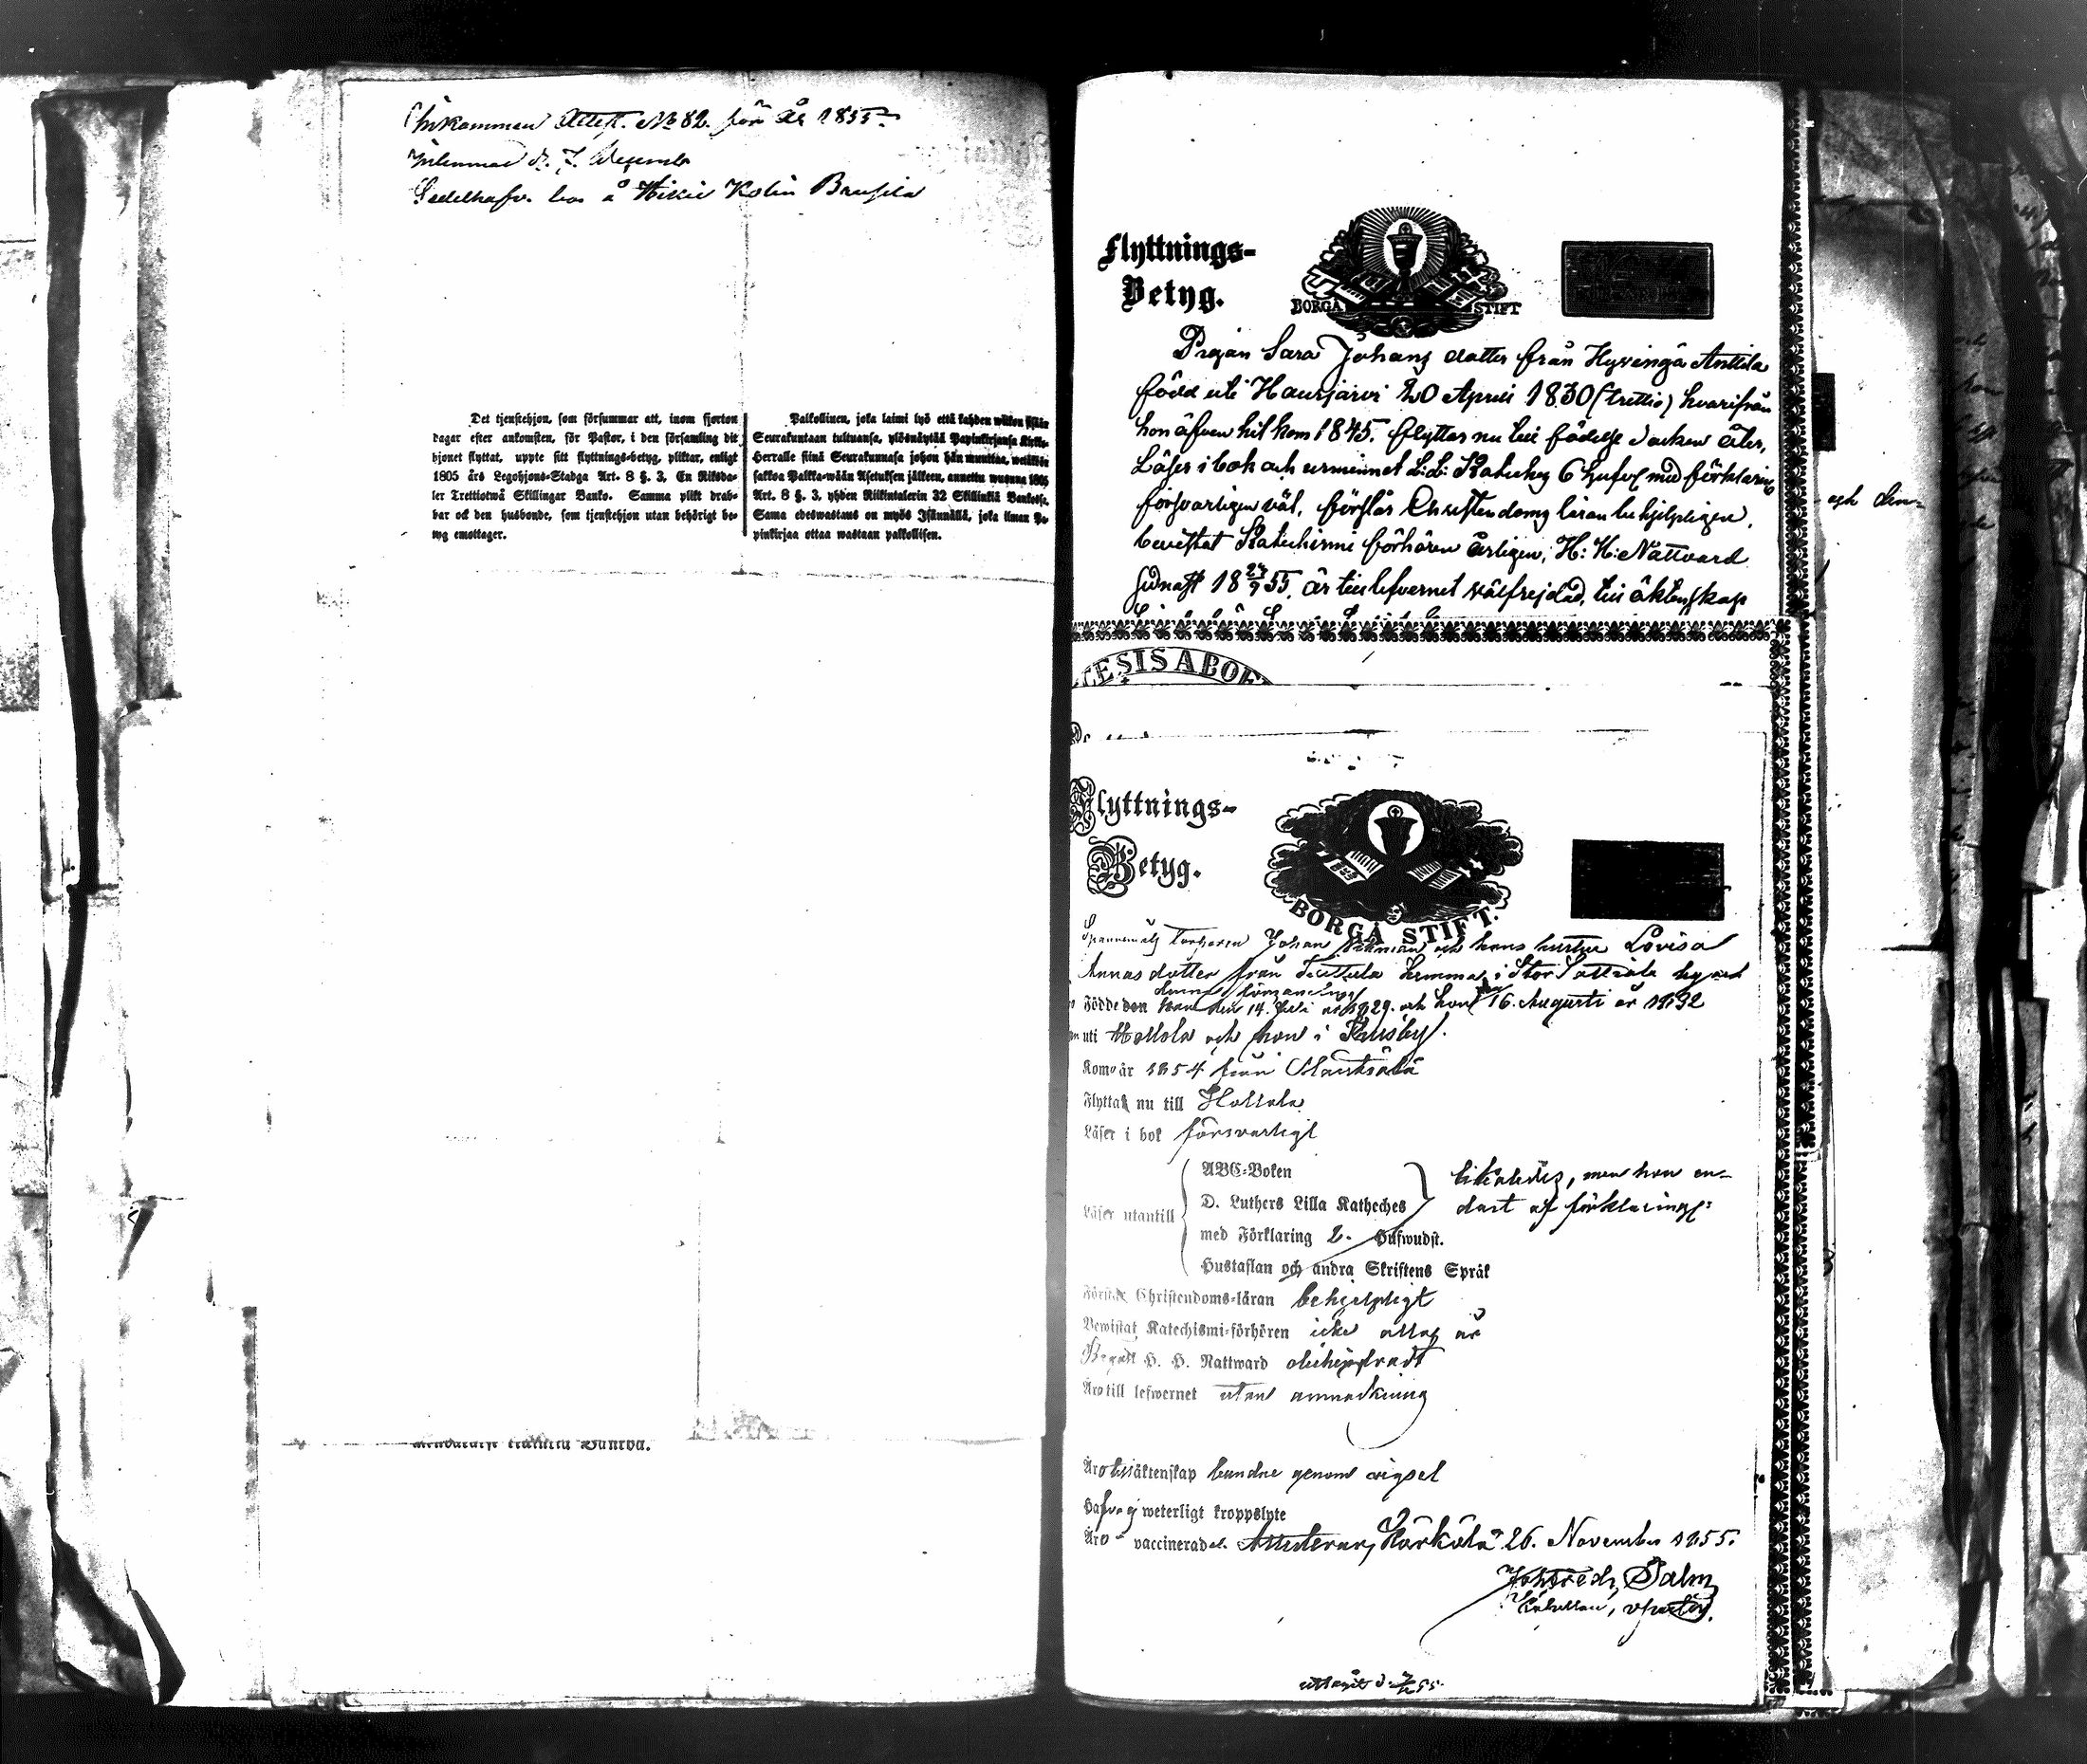 Inkommen Attest. No 82. för år 1855.
inlemnad d. 7. Decemb
å Hikiä Kolin
Det tjenstehjon, som försummar att, inom fjorton
dagar efter ankomsten, för Pastor, i den församling dit
hjonet flyttat, uppte sitt flyttnings-betyg, pliktar, enligt
1805 års Legohjons-Stadga Art. 8 §. 3, En Riksda-
ler Trettiotwå Skillingar Banko. Samma plikt drab-
bar ock den husbonde, som tjenstehjon utan behörigt be-
tyg emottager.
Palkollinen, joka laimi lyö että kahden wiikon sisään
Seurakuntaan tultuansa, ylösnäyttää Papinkirjansa Kirkko-
Herralle siinä Seurakunnasa johon hän muuttaa, wetäköön
sakkoa Palkka-wään Asetuksen jälkeen, annettu wuonna 1805
Art. 8 §. 3, yhden Riikintalerin 32 Skillinkiä Bankossa.
Sama edeswastaus on myös Isännällä, joka ilman Pa-
pinkirjaa ottaa wastaan palkollisen.
Flyttnings-
Betyg.
BORGÅ STIFT
Pigan Sara Johans dotter från Hyvingä Anttila
född uti Hausjärvi 20 April 1830 (trettio) hvarifrån
hon äfven hit kom 1845. flyttar nu till födelse socken åter,
Läser i bok och urminnet L: L: Kateches 6 Hufvs med förklaring
försvarligen väl, förstår Christendoms läran behjelpligen,
bevistat Katechismi förhören årligen, H: H: Nattvard
sednast 18 23/9 55. är till lefvernet välfrejdad, till äktenskap
ESIS ABOE
Flyttnings-
Betyg.
BORGÅ STIFT.
Spannemåls Torparen Johan och hans hustru Lovisa
Annas dotter från hemman i Stor by och
denna församling
Födde den han den 14. Juli år 1829. och hon 16. Augusti år 1832
uti Hollola och hon i Thusby.
Komo år 1854 från Mäntsälä
Flytta nu till Hollola
Läser i bok försvarligt
Läser utantill
ABC-Boken
D. Luthers Lilla Katheches
med Förklaring 2. Hufwudst.
Hustaflan och andra Skriftens Språk
likaledes, men hon en-
dast af förklaring:
Förstår Christendoms-läran behjelpligt
Bewistat Katechismi-förhören icke alla år
Begått H. H. Nattward oklanderadt
Äro till lefwernet utan anmärkning
Äro till äktenskap bundne genom vigsel
Hafva ej weterligt kroppslyte
Äro vaccinerade. Attesterar, Kärkölä 26. November 1855.
Joh Fredr Salm
Kapellan, v pastor.